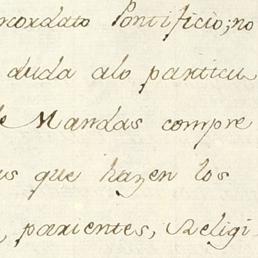 ncordato Pontificio; no
duda alo particu
de Mandas compre
as que hazen los
, parientes, Religi